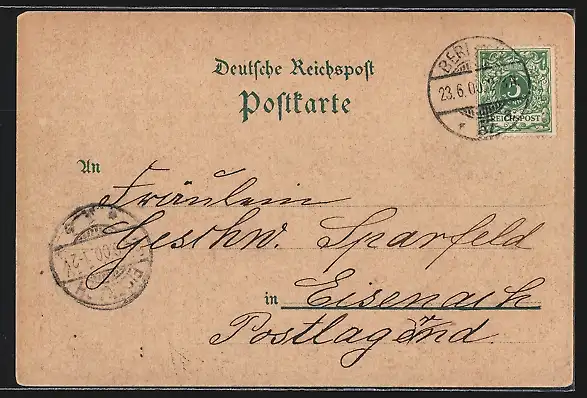 Deutsche Reichspost
Postkarte
BERLIN
23.6.00
5
REICHSPOST
An
Fräulein
Geschw. Sparfeld
in Eisenach
Postlagernd.